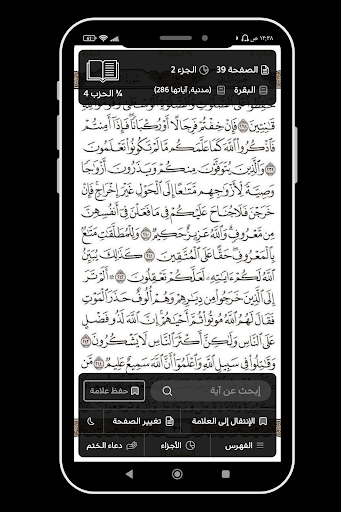 ١٢:٣٨ ص
الصفحة 39
الجزء 2
البقرة
(مدنية, آياتها 286)
¾ الحزب 4
حَٰفِظُوا۟ عَلَى ٱلصَّلَوَٰتِ وَٱلصَّلَوٰةِ ٱلْوُسْطَىٰ وَقُومُوا۟ لِلَّهِ
قَٰنِتِينَ ٢٣٨ فَإِنْ خِفْتُمْ فَرِجَالًا أَوْ رُكْبَانًا فَإِذَآ أَمِنتُمْ
فَٱذْكُرُوا۟ ٱللَّهَ كَمَا عَلَّمَكُم مَّا لَمْ تَكُونُوا۟ تَعْلَمُونَ
٢٣٩ وَٱلَّذِينَ يُتَوَفَّوْنَ مِنكُمْ وَيَذَرُونَ أَزْوَٰجًا
وَصِيَّةً لِّأَزْوَٰجِهِم مَّتَٰعًا إِلَى ٱلْحَوْلِ غَيْرَ إِخْرَاجٍ فَإِنْ
خَرَجْنَ فَلَا جُنَاحَ عَلَيْكُمْ فِى مَا فَعَلْنَ فِىٓ أَنفُسِهِنَّ
مِن مَّعْرُوفٍ وَٱللَّهُ عَزِيزٌ حَكِيمٌ ٢٤٠ وَلِلْمُطَلَّقَٰتِ مَتَٰعٌۢ
بِٱلْمَعْرُوفِ حَقًّا عَلَى ٱلْمُتَّقِينَ ٢٤١ كَذَٰلِكَ يُبَيِّنُ
ٱللَّهُ لَكُمْ ءَايَٰتِهِۦ لَعَلَّكُمْ تَعْقِلُونَ ٢٤٢ أَلَمْ تَرَ إِلَى
ٱلَّذِينَ خَرَجُوا۟ مِن دِيَٰرِهِمْ وَهُمْ أُلُوفٌ حَذَرَ ٱلْمَوْتِ
فَقَالَ لَهُمُ ٱللَّهُ مُوتُوا۟ ثُمَّ أَحْيَٰهُمْ إِنَّ ٱللَّهَ لَذُو فَضْلٍ
عَلَى ٱلنَّاسِ وَلَٰكِنَّ أَكْثَرَ ٱلنَّاسِ لَا يَشْكُرُونَ ٢٤٣
وَقَٰتِلُوا۟ فِى سَبِيلِ ٱللَّهِ وَٱعْلَمُوٓا۟ أَنَّ ٱللَّهَ سَمِيعٌ عَلِيمٌ ٢٤٤ مَّن
إبحث عن آية
حفظ علامة
الإنتقال إلى العلامة
تغيير الصفحة
الفهرس
الأجزاء
دعاء الختم